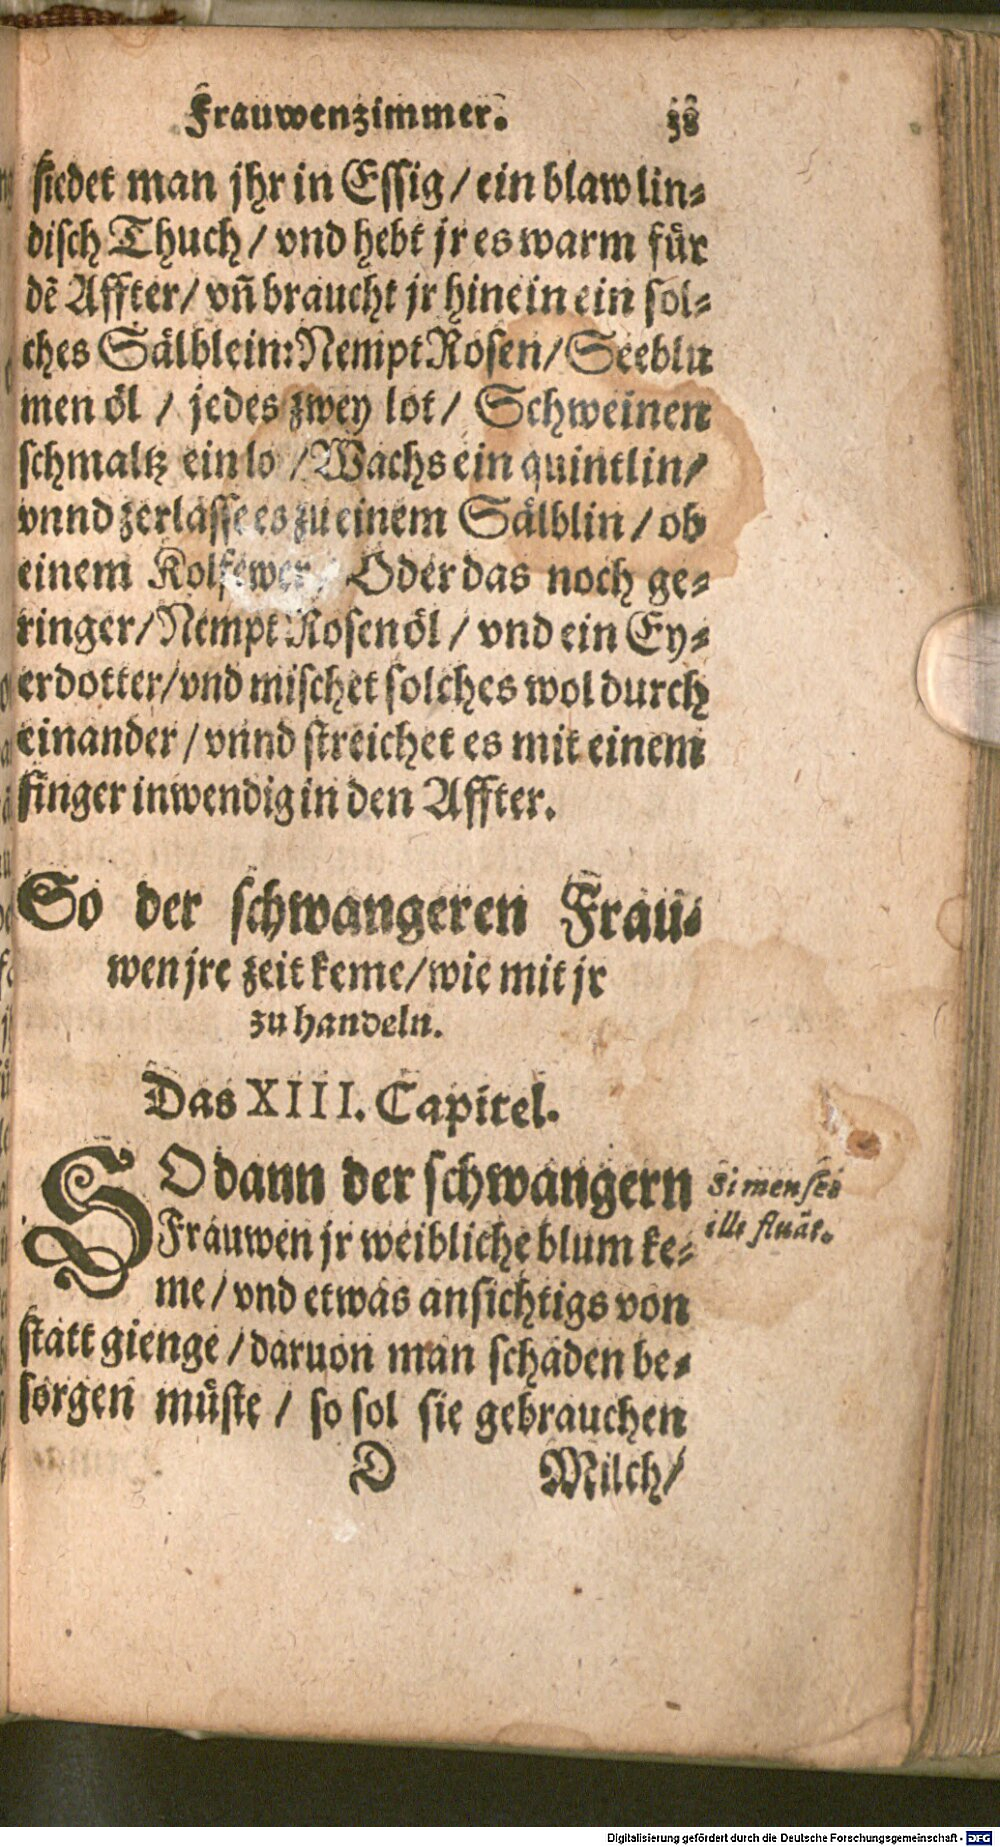 Frauwenzimmer. 38
siedet man jhr in Essig / ein blaw lin⸗
disch Thuch / vnd hebt jr es warm für
dē Affter / vñ braucht jr hinein ein sol⸗
ches Sälblein: Nempt Rosen / Seeblu
men öl / jedes zwey lot / Schweinen
schmaltz ein lo / Wachs ein quintlin /
vnnd zerlasse es zu einem Sälblin / ob
einem Kolfewer / Oder das noch ge⸗
ringer / Nempt Rosenöl / vnd ein Ey⸗
erdotter / vnd mischet solches wol durch
einander / vnnd streichet es mit einem
finger inwendig in den Affter.
So der schwangeren Frau⸗
wen jre zeit keme / wie mit jr
zu handeln.
Das XIII. Capitel.
SO dann der schwangern
Frauwen jr weibliche blum ke⸗
me / vnd etwas ansichtigs von
statt gienge / daruon man schaden be⸗
sorgen müste / so sol sie gebrauchen
Si menses
illi fluāt.
D Milch /
Digitalisierung gefördert durch die Deutsche Forschungsgemeinschaft - DFG